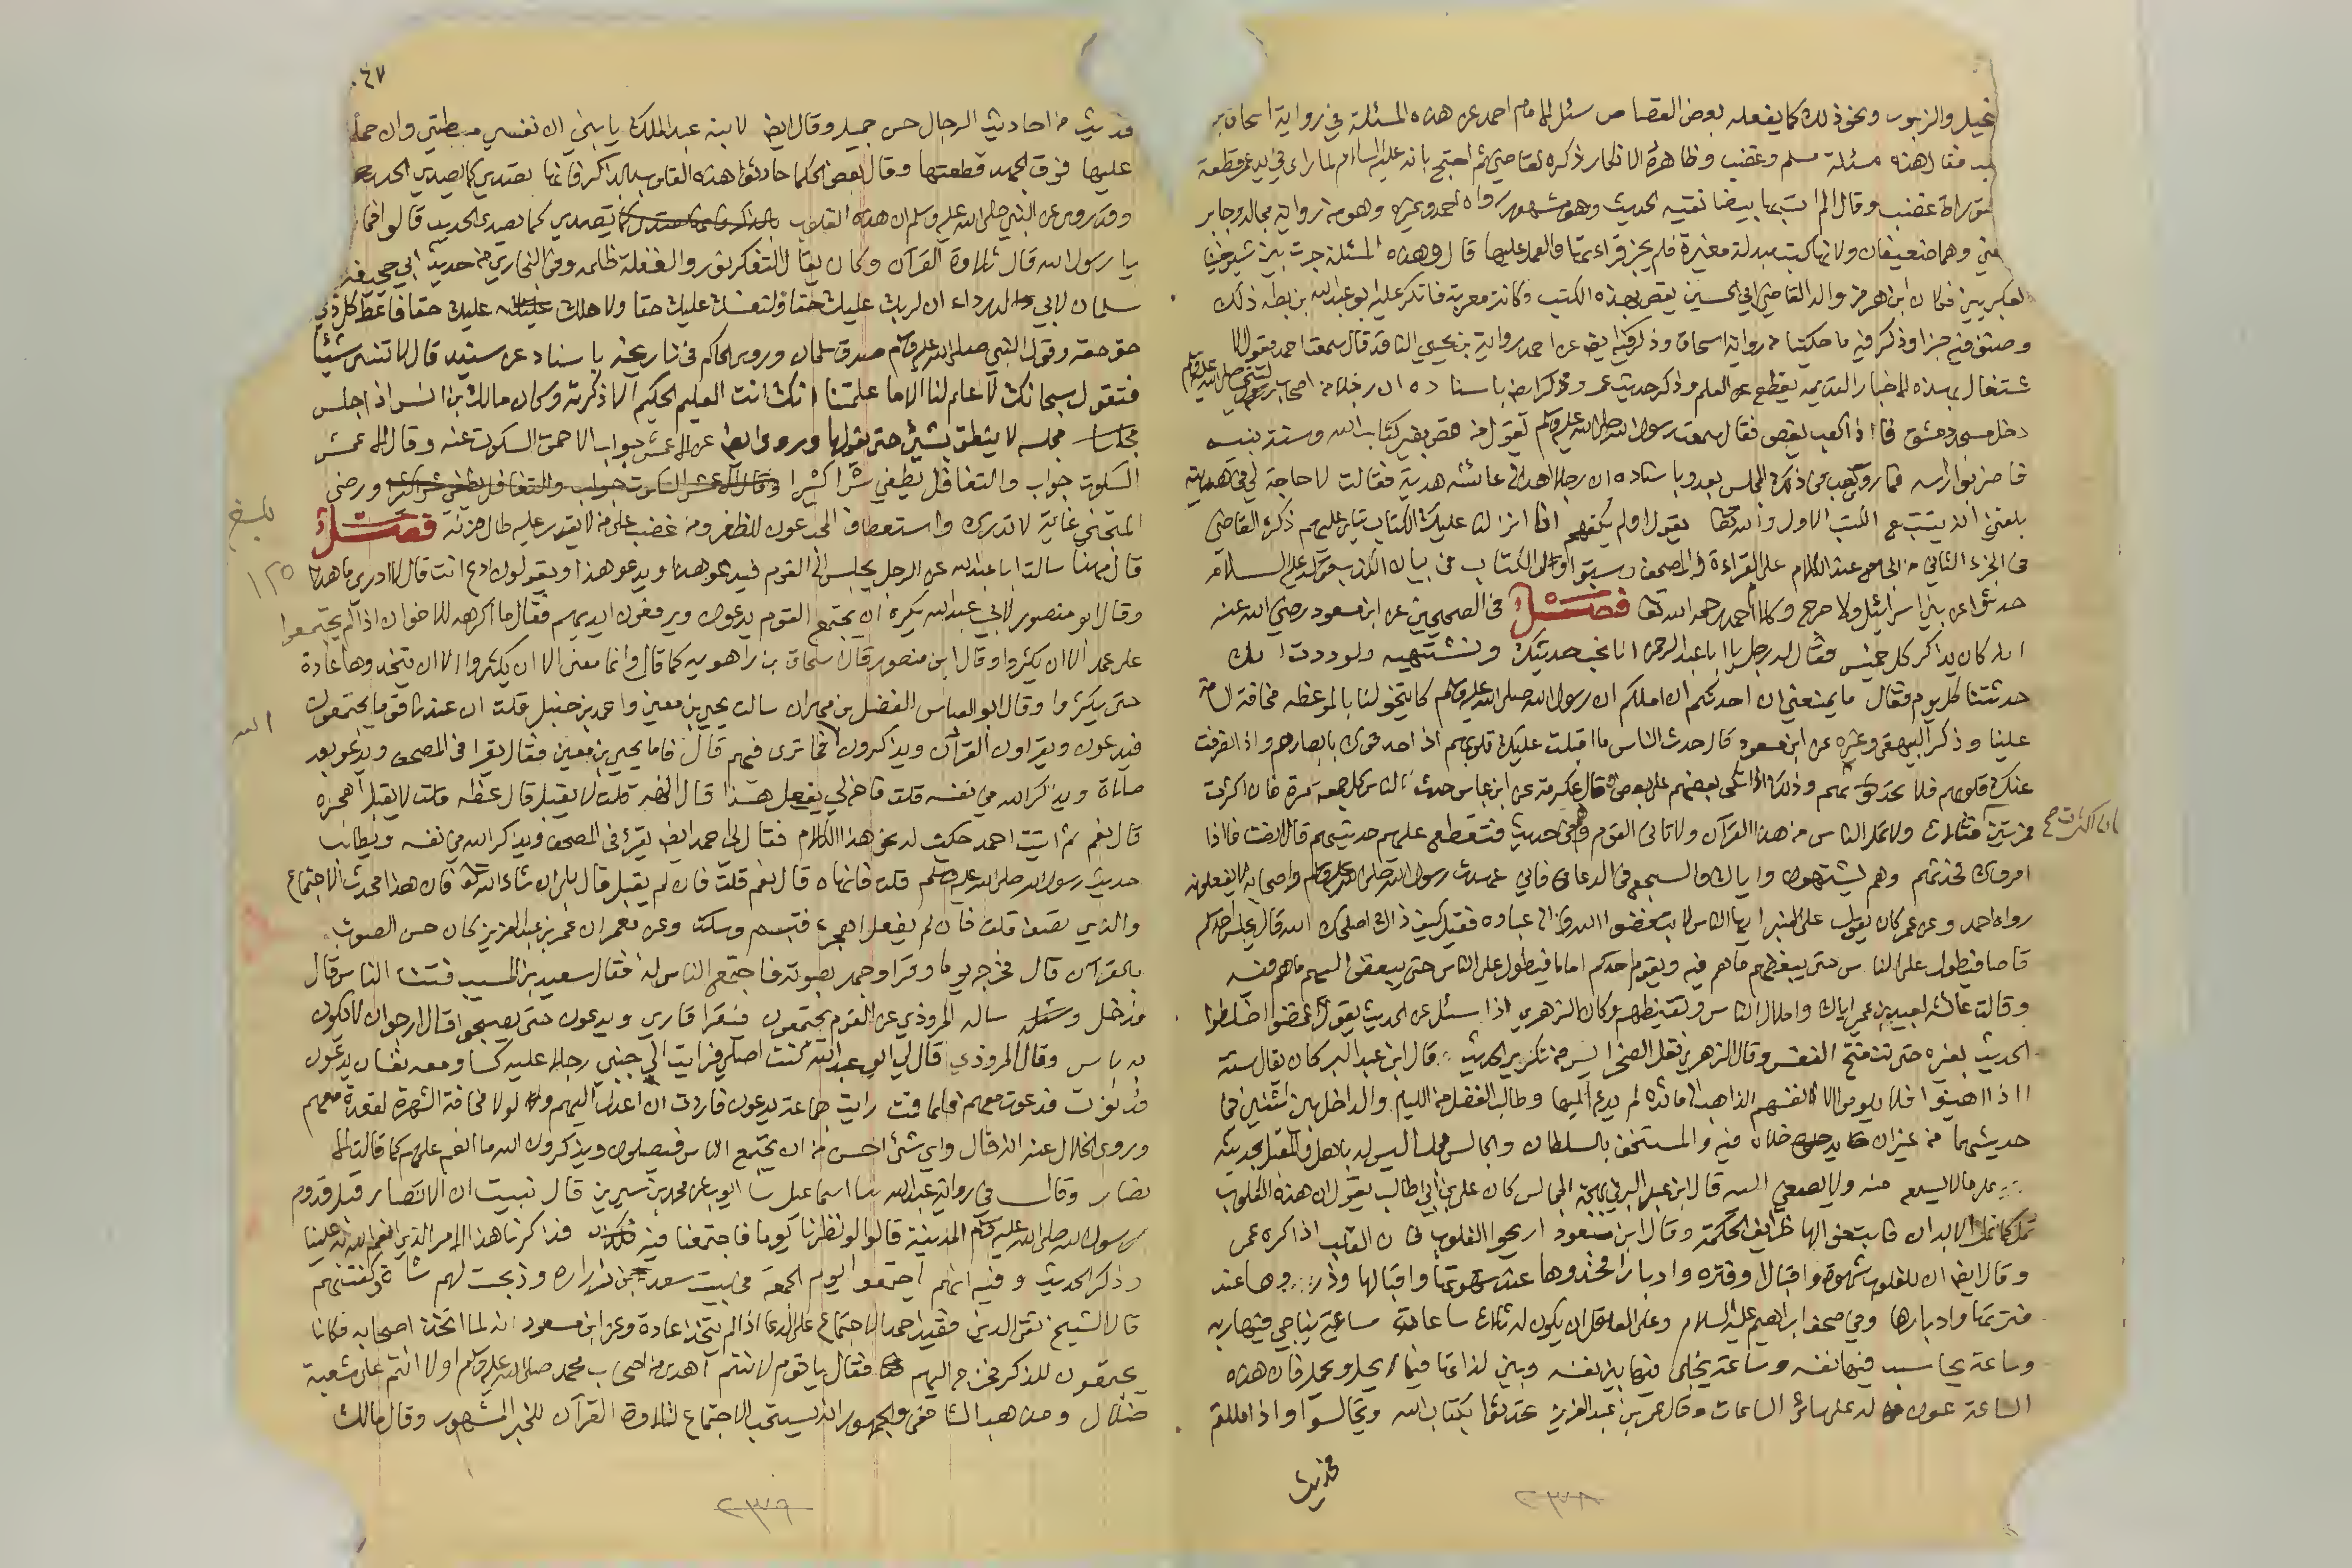 نجيل والزبور ونحو ذلك كما يفعله بعض القصاص سئل الامام احمد عن هذه المسئلة في رواية اسحاق بن
فقال هذه مسئلة مسلم وغضب وظاهره الانكار ذكره القاضي ثم احتج بانه عليه السلام لما راى في يد عمر قطعة
توراة غضب وقال الم آت بها بيضا نقية الحديث وهو مشهور رواه احمد وغيره وهو من رواية مجالد وجابر
وهما ضعيفان ولانها كتب مبدلة مغيرة فلم يجز قراءتها والعمل عليها قال وهذه المسئلة جرت بين شيوخنا
العكبريين فكان ابن هرمز والد القاضي ابي الحسين يقص بهذه الكتب وكانت معربة فانكر عليه ابو عبد الله بن بطه ذلك
وصنف فيه جزا وذكر فيه ما حكيناه من رواية اسحاق وذكر فيه ايضا عن احمد رواية بن يحيى الناقد قال سمعت احمد يقول الا
شتغال بهذه الاخبار القديمه يقطع عن العلم وذكر حديث عمر وذكر ايضا باسناده ان رجلا من اصحاب رسول الله صلى الله عليه وسلم
دخل مسجد دمشق فاذا كعب يقص فقال سمعت رسول الله صلى الله عليه وسلم يقول من قص بغير كتاب الله وسنة نبيه
فاضربوا راسه فما روي كعب في ذلك المجلس بعد وباسناده ان رجلا اهدى الى عائشه هدية فقالت لا حاجة لي في هديته
بلغني انه يتتبع الكتب الاول والله تعالى يقول اولم يكفهم انا انزلنا عليك الكتاب يتلى عليهم ذكره القاضي
في الجزء الثاني من الجامع عند الكلام على القراءة في المصحف وسبق اول الكتاب في بيان الكذب قوله عليه السلام
حدثوا عن بني اسرائيل ولا حرج وكلام احمد رحمه الله تعالى فصل في الصحيحين عن ابن مسعود رضي الله عنه
انه كان يذاكر كل خميس فقال له رجل يا ابا عبد الرحمن انا نحب حديثك ونشتهيه ولوددت انك
حدثتنا كل يوم فقال ما يمنعني ان احدثكم ان املكم ان رسول الله صلى الله عليه وسلم كان يتخولنا بالموعظه مخافة السامة
علينا وذكر البيهقي وغيره عن ابن مسعود كان حدث الناس ما اقبلت عليك قلوبهم اذا حدقوك بابصارهم واذا انصرفت
عنك قلوبهم فلا تحدثهم وذلك اذا اتكى بعضهم على بعض وقال عكرمة عن ابن عباس حدث الناس كل جمعه مرة فان اكثرت
فمرتين فثلاث ولا تمل الناس من هذا القرآن ولا تاتي القوم وهم في حديث فتقطع عليهم حديثهم قال انصت فاذا
امروك فحدثهم وهم يشتهون واياك والسجع في الدعا فاني عهدت رسول الله صلى الله عليه وسلم واصحابه لا يفعلونه
رواه احمد وعن عمر كان يقول على المنبر ايها الناس لا تبغضوا الله الى عباده فقيل كيف ذاك اصلحك الله قال يجلس احدكم
قاصا فيطول على الناس حتى يبغض اليهم ما هم فيه ويقوم احدكم اماما فيطول على الناس حتى يبغض اليهم ما هم فيه
وقالت عائشه لعبيد بن عمير اياك واملال الناس وتقنيطهم وكان الزهري اذا سئل عن الحديث يقول احمضوا اخلطوا
الحديث بغيره حتى تنفتح النفس وقال الزهري نقل الصخر ايسر من تكرير الحديث قال ابن عبد البر كان يقال ستة
اذا اهينوا فلا يلوموا الا انفسهم الذاهب الى مائدة لم يدع اليها وطالب الفضل من اللئيم والداخل بين اثنين في
حديثهما من غير ان يدخلاه فيه والمستخف بالسلطان والجالس مجلسا ليس له باهل والمقبل بحديثه
على من لا يسمع منه ولا يصغي اليه قال ابن عبد البر في بهجة المجالس كان علي بن ابي طالب يقول ان هذه القلوب
تمل كما تمل الابدان فابتغوا لها طرائف الحكمة وقال ابن مسعود اريحوا القلوب فان القلب اذا كره عمي
وقال ايضا ان للقلوب شهوة واقبالا وفترة وادبارا فخذوها عند شهوتها واقبالها وذروها عند
فترتها وادبارها وفي صحف ابراهيم عليه السلام وعلى العاقل ان يكون له ثلاث ساعات ساعة يناجي فيها ربه
وساعة يحاسب فيها نفسه وساعة يخلي فيها بين نفسه وبين لذاتها فيما يحل ويجمل فان هذه
الساعة عون له على سائر الساعات وقال عمر بن عبد العزيز تحدثوا بكتاب الله وتجالسوا واذا مللتم
فحديث
٢٣٧٨
فان اكثرت صح
٤٧
فحديث من احاديث الرجال حسن جميل وقال ايضا لابنه عبد الملك يا بني ان نفسي مطيتي وان حملت
عليها فوق الجهد قطعتها وقال بعض الحكما حادثوا هذه القلوب بالذكر فانها تصدي كما يصدي الحديد
وقد روي عن النبي صلى الله عليه وسلم ان هذه القلوب تصدي كما يصدى الحديد قالوا فما
يا رسول الله قال تلاوة القرآن وكان يقال التفكر نور والغفلة ظلمه وفي البخاري من حديث ابي جحيفة
سلمان لابي الدرداء ان لربك عليك حقا ولنفسك عليك حقا ولاهلك عليك حقا فاعط كل ذي
حق حقه وقول النبي صلى الله عليه وسلم صدق سلمان وروى الحاكم في تاريخه باسناد عن سنيد قال لا تنس شيئا
فتقول سبحانك لا علم لنا الا ما علمتنا انك انت العليم الحكيم الا ذكرته وكان مالك بن انس اذا جلس
مجلسه لا ينطق بشئ حتى يقولها وروى ايضا عن الاعمش جواب الاحمق السكوت عنه وقال الاعمش
السكوت جواب والتغافل يطفي شرا كثيرا ورضى
المتجني غاية لا تدرك واستعطاف المحب عون للظفر ومن غضب على من لا يقدر عليه طال حزنه فصل
قال مهنا سالت ابا عبد الله عن الرجل يجلس الى القوم فيدعو هذا ويدعو هذا ويقولون ادع انت قال لا ادري ما هذا
وقال ابو منصور لابي عبد الله يكره ان يجتمع القوم يدعون ويرفعون ايديهم فقال ما اكرهه للاخوان اذا لم يجتمعوا
على عمد الا ان يكثروا وقال ابن منصور قال اسحاق بن راهويه كما قال وانما معنى الا ان يكثروا الا ان يتخذوها عادة
حتى يكثروا وقال ابو العباس الفضل بن مهران سالت يحيى بن معين واحمد بن حنبل قلت ان عندنا قوما يجتمعون
فيدعون ويقراون القرآن ويذكرون الله فما ترى فيهم قال فاما يحيى بن معين فقال يقرا في المصحف ويدعو بعد
صلاة ويذكر الله في نفسه قلت فاخ لي يفعل هذا قال انهه قلت لا يقبل قال عظه قلت لا يقبل اهجره
قال نعم ثم اتيت احمد حكيت له نحو هذا الكلام فقال لي احمد ايضا يقرؤ في المصحف ويذكر الله في نفسه ويطلب
حديث رسول الله صلى الله عليه وسلم قلت فانهاه قال نعم قلت فان لم يقبل قال بلى ان شاء الله تعالى فان هذا محدث الاجتماع
والذي تصف قلت فان لم يفعل اهجره فتبسم وسكت وعن معمر ان عمر بن عبد العزيز كان حسن الصوت
بالقرآن قال فخرج يوما وقرا وجهر بصوته فاجتمع الناس له فقال سعيد بن المسيب فتنت الناس قال
فدخل وساله المروذي عن القوم يجتمعون فيقرا قاري ويدعون حتى يصبحوا قال ارجو ان لا يكون
به باس وقال المروذي قال لي ابو عبد الله كنت اصلي فرايت الى جنبي رجلا عليه كسا ومعه نفسان يدعون
فدنوت فدعوت معهم فلما قمت رايت جماعة يدعون فاردت ان اعدل اليهم ولولا مخافة الشهرة لقعدت معهم
وروى الخلال عنه انه قال واي شئ احسن من ان يجتمع الناس فيصلون ويذكرون الله ما انعم عليهم كما قالت الا
نصار وقال في رواية عبد الله ثنا اسماعيل ثنا ايوب عن محمد بن سيرين قال نبيت ان الانصار قبل قدوم
رسول الله صلى الله عليه وسلم المدينة قالوا لو نظرنا يوما فاجتمعنا فيه فذكرنا هذا الامر الذي انعم الله به علينا
وذكر الحديث وفيه انهم اجتمعوا يوم الجمعة في بيت سعد بن زراره وذبحت لهم شاة وكفتهم
قال الشيخ تقي الدين فقيد احمد الاجتماع على الدعا اذا لم يتخذ عادة وعن ابن مسعود انه لما اتخذ اصحابه مكانا
يجتمعون للذكر فخرج اليهم فقال يا قوم لانتم اهدى من اصحاب محمد صلى الله عليه وسلم او لانتم على شعبة
ضلال ومذهب الشافعي والجمهور انه يستحب الاجتماع لتلاوة القرآن للخبر المشهور وقال مالك
بلغ
١٢٥
الله
٢٣٧٩